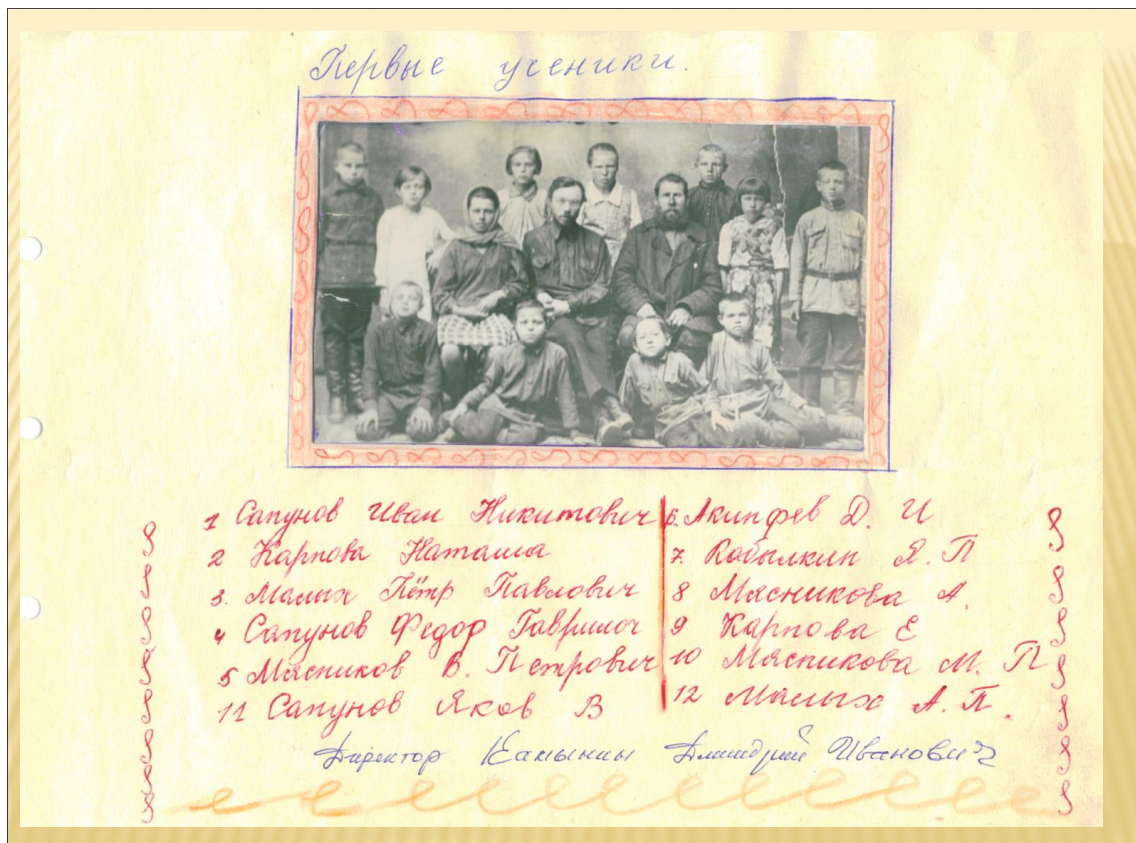 Первые ученики.
1 Сапунов Иван Никитович
2 Карпова Наташа
3. Малых Пётр Павлович
4 Сапунов Федор Гаврилоч
5 Мясников В. Петрович
11 Сапунов Яков В
6. Акинфев Д. И
7. Кобылкин Я. П
8 Мясникова А.
9 Карпова Е
10 Мясникова М. П
12 Малых А. П.
Директор Дмитрий Иванович